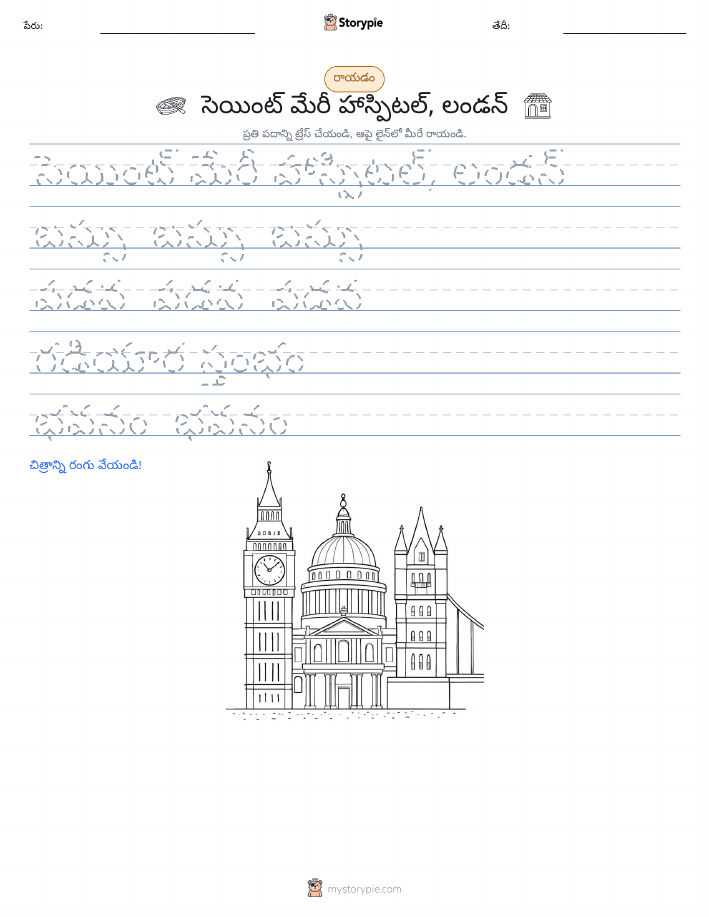 పేరు:
Storypie
తేదీ:
రాయడం
సెయింట్ మేరీ హాస్పిటల్, లండన్
ప్రతి పదాన్ని ట్రేస్ చేయండి, ఆపై లైన్‌లో మీరే రాయండి.
సెయింట్ మేరీ హాస్పిటల్, లండన్
బస్సు బస్సు బస్సు
పడవ పడవ పడవ
గడియార స్తంభం
భవనం భవనం
చిత్రాన్ని రంగు వేయండి!
mystorypie.com